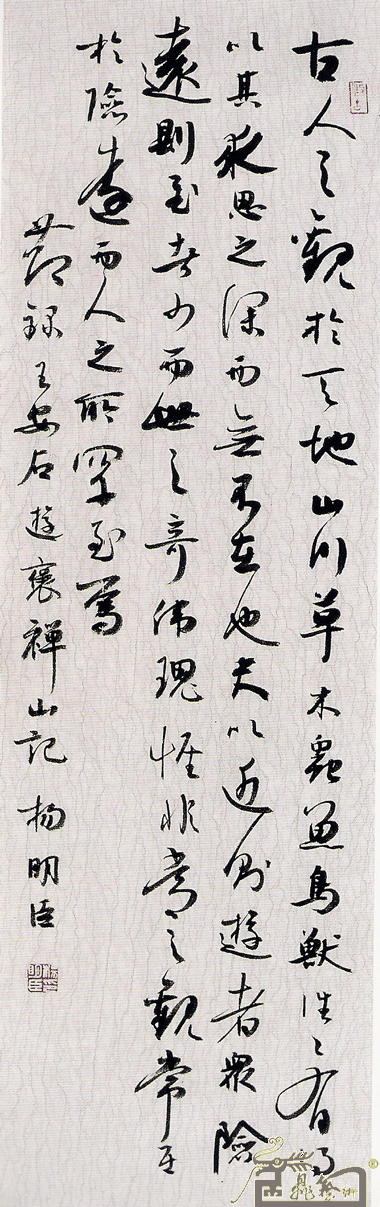 古人之觀於天地山川草木蟲魚鳥獸往〻有得
以其求思之深而無不在也夫以近則遊者眾險
遠則至者少而世之奇偉瑰怪非常之觀常在
於險遠而人之所罕至焉
節錄王安石遊褒禪山記 楊明臣